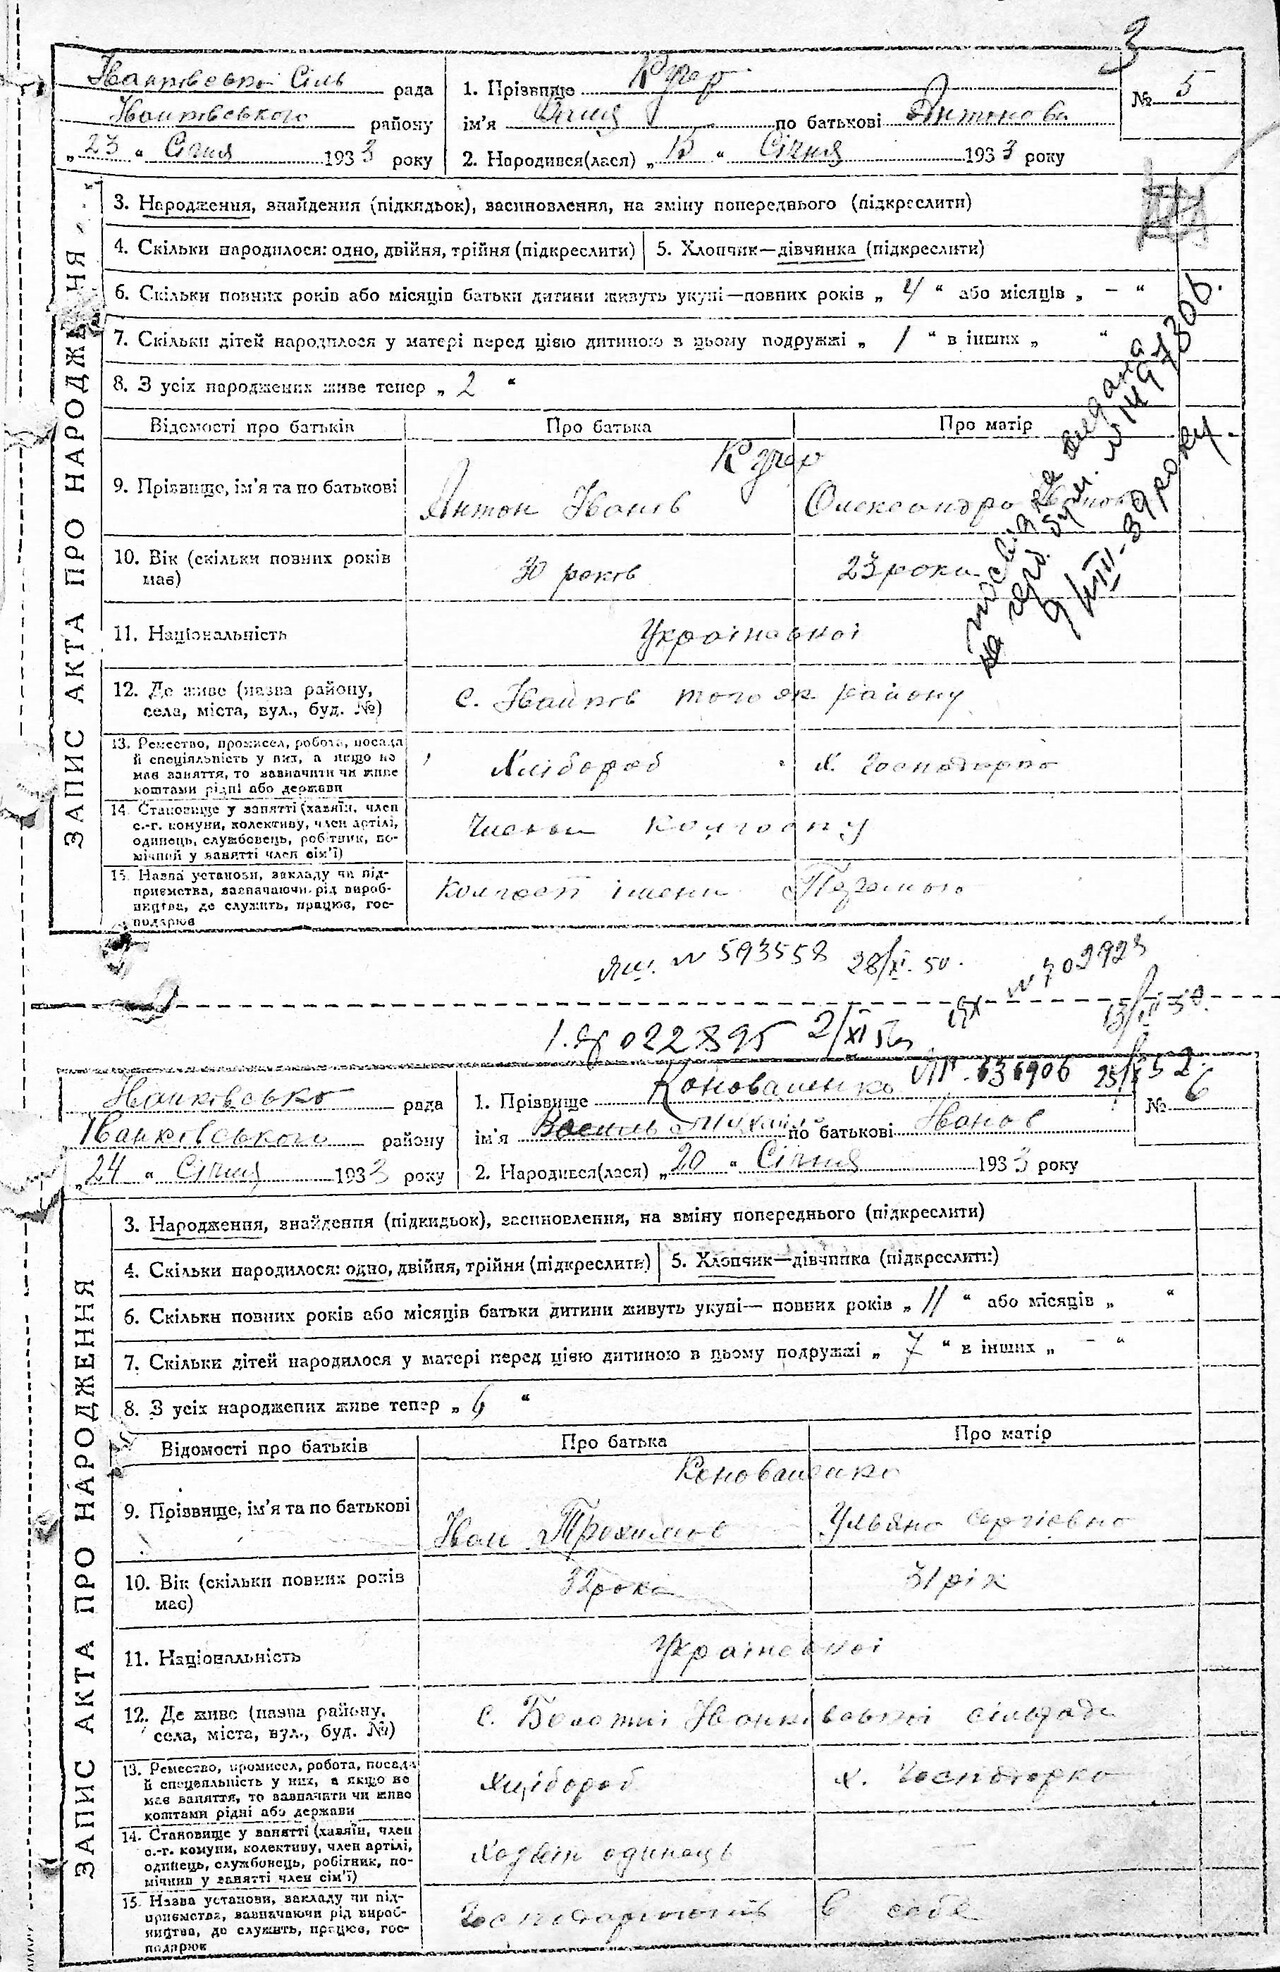 3
рада
району
„ 23 “ Січня 1933 року
1. Прізвище Кучер
ім'я по батькові Антонова
2. Народився(лася) „ 15 “ Січня 1933 року
№ 5
ЗАПИС АКТА ПРО НАРОДЖЕННЯ
3. Народження, знайдення (підкидьок), засиновлення, на зміну попереднього (підкреслити)
4. Скільки народилося: одно, двійня, трійня (підкреслити)
5. Хлопчик—дівчинка (підкреслити)
6. Скільки повних років або місяців батьки дитини живуть укупі—повних років „ 4 “ або місяців „ - “
7. Скільки дітей народилося у матері перед цією дитиною в цьому подружжі „ 1 “ в інших „ “
8. З усіх народжених живе тепер „ 2 “
Відомості про батьків
Про батька
Про матір
Кучер
9. Прізвище, ім'я та по батькові
Антон Іванів
Олександра
10. Вік (скільки повних років
має)
30 років
23 роки
11. Національність
Української
12. Де живе (назва району,
села, міста, вул., буд. №)
с. Іванків того ж району
13. Ремество, промисел, робота, посада
й спеціяльність у них, а якщо не
має заняття, то зазначити чи живе
коштами рідні або держави
Хлібороб
х. господарка
14. Становище у занятті (хазяїн, член
с.-г. комуни, колективу, член артілі,
одинець, службовець, робітник, по-
мічний у занятті член сім'ї)
Члени колгоспу
15. Назва установи, закладу чи під-
приємства, зазначаючи рід вироб-
ництва, де служить, працює, гос-
подарює
Колгосп імени
видана
№ 593558 28/XI. 50.
№ 702923
022895 2/XI
рада
Іванківського району
„ 24 “ Січня 1933 року
1. Прізвище Коноваленко
ім'я Василь по батькові Іванов
2. Народився(лася) „ 20 “ Січня 1933 року
№ 6
ЗАПИС АКТА ПРО НАРОДЖЕННЯ
3. Народження, знайдення (підкидьок), засиновлення, на зміну попереднього (підкреслити)
4. Скільки народилося: одно, двійня, трійня (підкреслить)
5. Хлопчик—дівчинка (підкреслить)
6. Скільки повних років або місяців батьки дитини живуть укупі— повних років „ 11 “ або місяців „ “
7. Скільки дітей народилося у матері перед цією дитиною в цьому подружжі „ 7 “ в інших „ - “
8. З усіх народжених живе тепер „ 6 “
Відомості про батьків
Про батька
Про матір
Коноваленко
9. Прізвище, ім'я та по батькові
Іван Трохимов
Ульяна Сергіевна
10. Вік (скільки повних років
має)
32 роки
31 рік
11. Національність
Української
12. Де живе (назва району,
села, міста, вул., буд. №)
с. Болотні Іванківської сільради
13. Ремество, промисел, робота, посада
й спеціяльність у них, а якщо не
має заняття, то зазначити чи живе
коштами рідні або держави
Хлібороб
х. господарка
14. Становище у занятті (хазяїн, член
с.-г. комуни, колективу, член артілі,
одинець, службовець, робітник, по-
мічний у занятті член сім'ї)
Хозяїн одинець
15. Назва установи, закладу чи під-
приємства, зазначаючи рід вироб-
ництва, де служить, працює, гос-
подарює
в себе